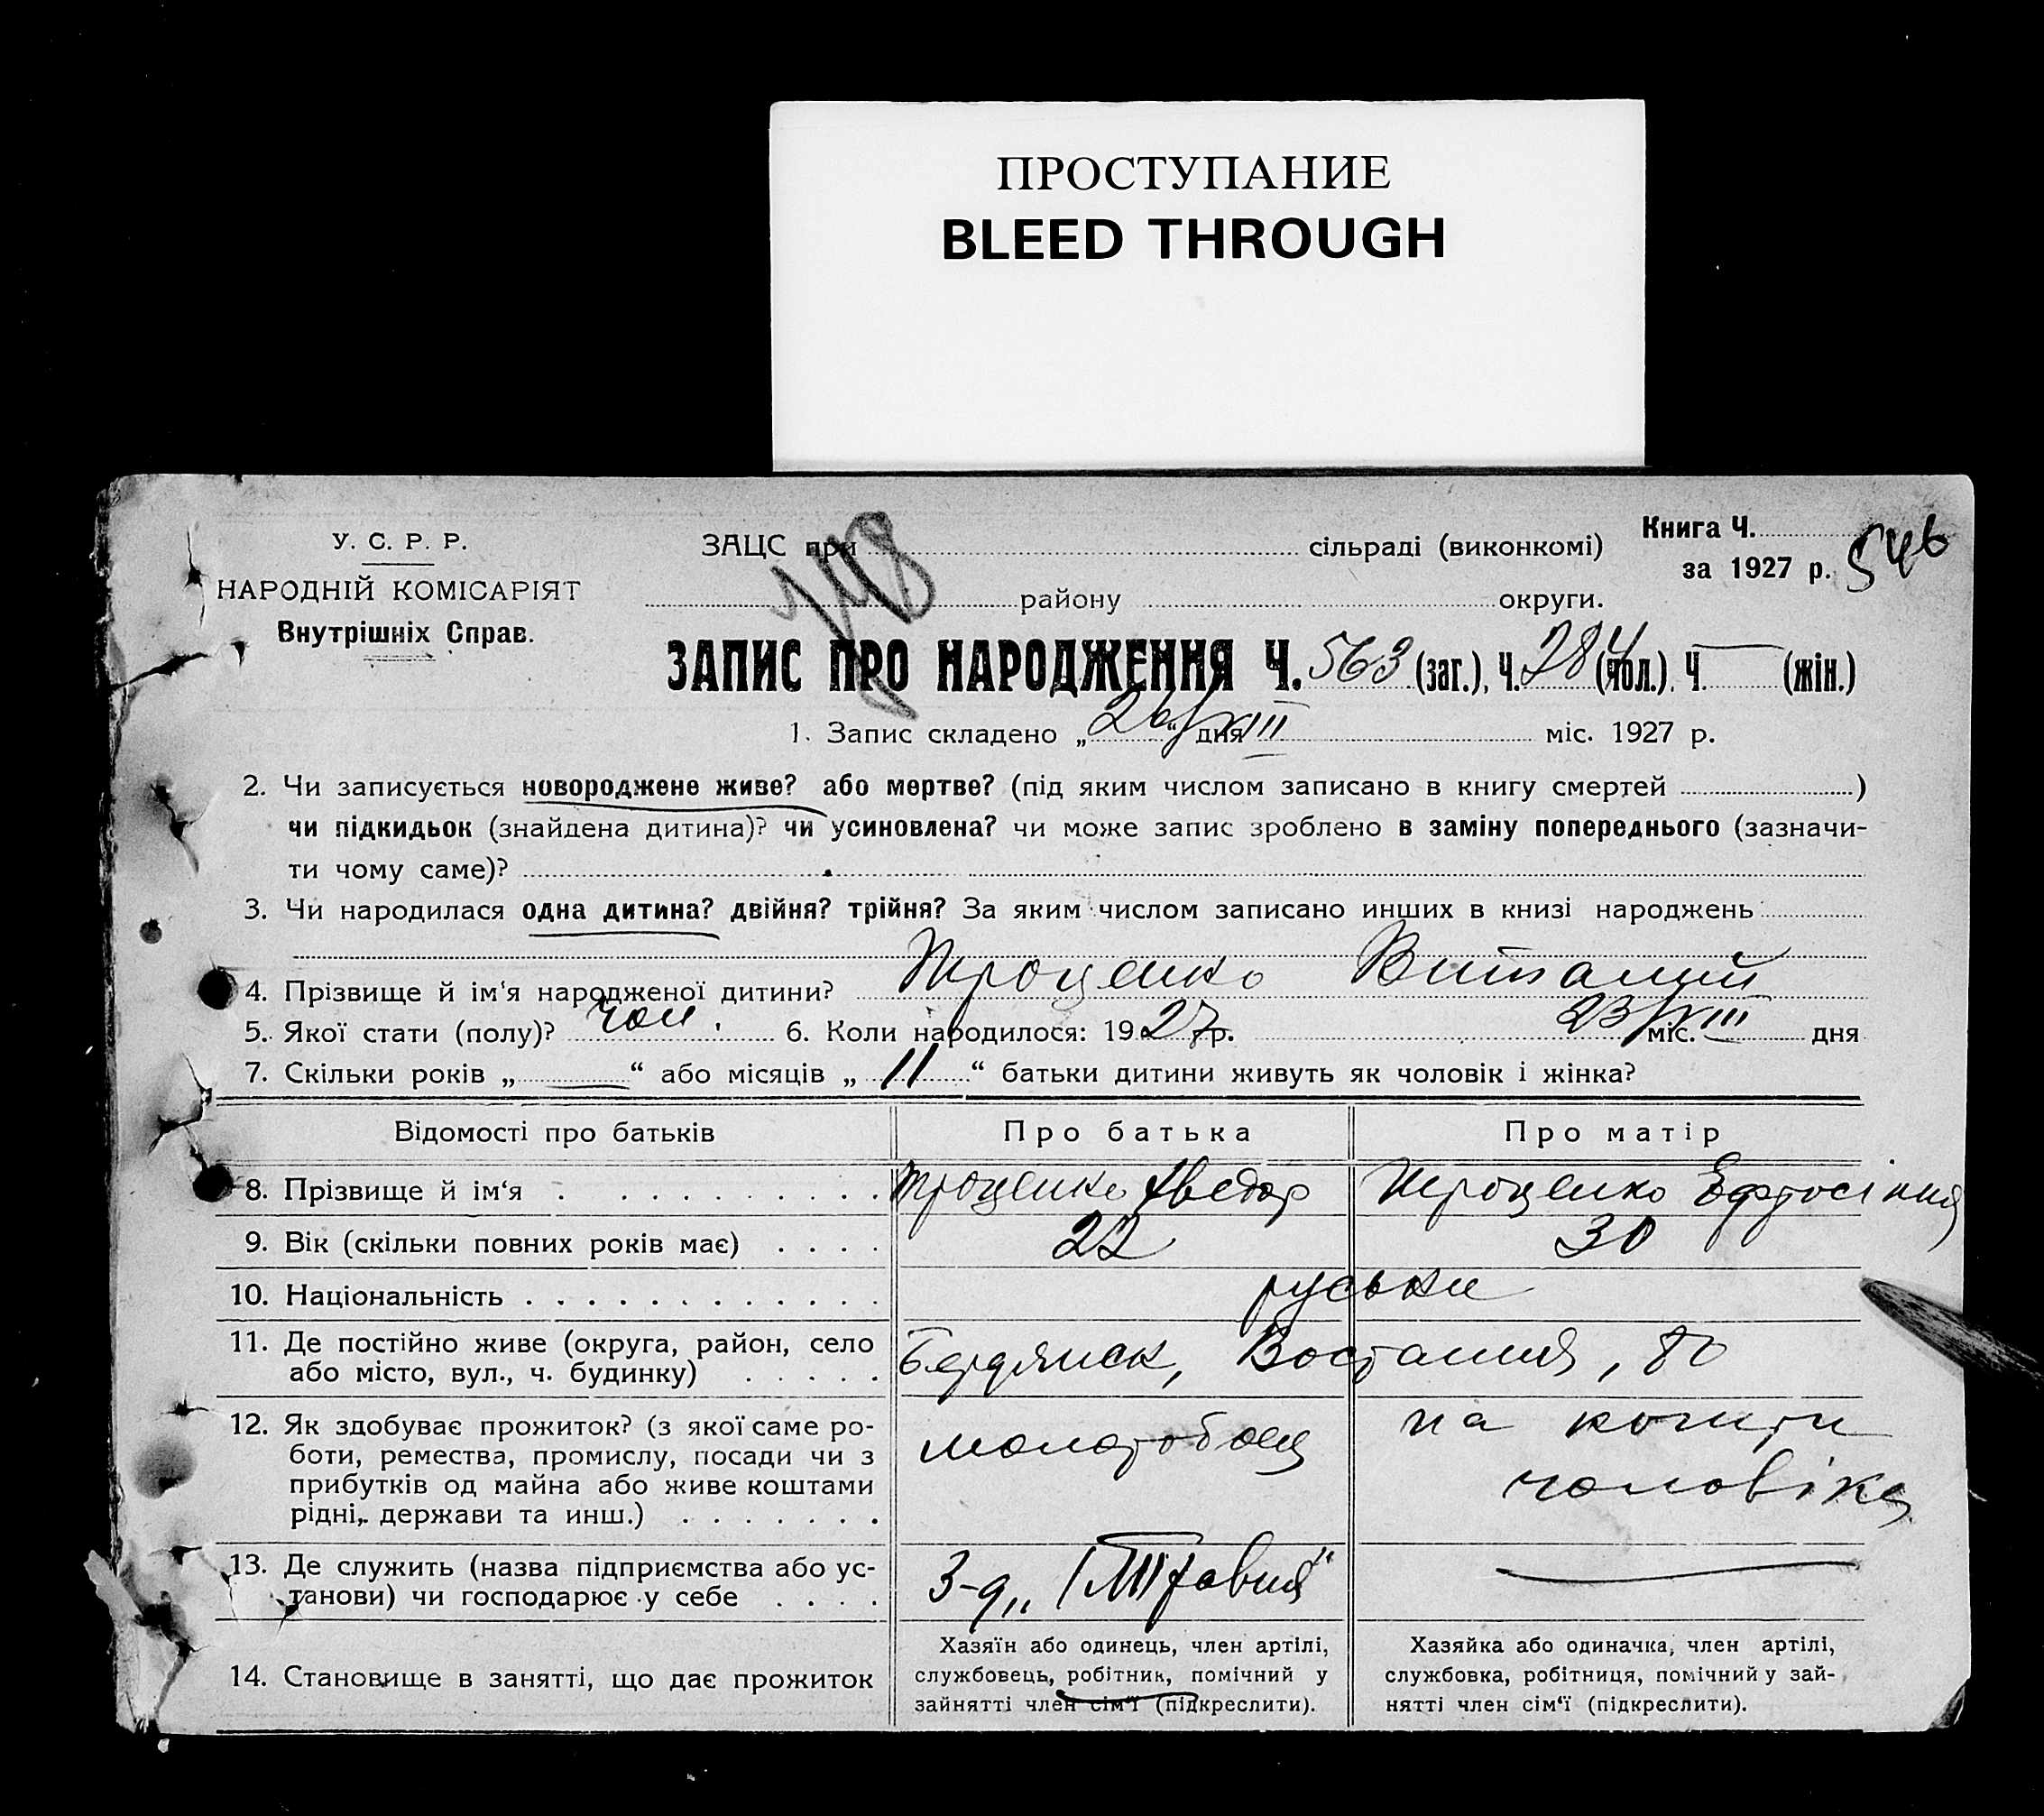 ПРОСТУПАНИЕ
BLEED THROUGH
У. С. Р. Р.
НАРОДНІЙ КОМІСАРІЯТ
Внутрішніх Справ.
148
ЗАЦС при сільраді (виконкомі)
району округи.
Книга Ч. 546
за 1927 р.
ЗАПИС ПРО НАРОДЖЕННЯ Ч. 563 (заг.), Ч. 284 (чол.), Ч. — (жін.)
1. Запис складено „26“ дня VIII міс. 1927 р.
2. Чи записується новороджене живе? або мертве? (під яким числом записано в книгу смертей )
чи підкидьок (знайдена дитина)? чи усиновлена? чи може запис зроблено в заміну попереднього (зазначи-
ти чому саме)?
3. Чи народилася одна дитина? двійня? трійня? За яким числом записано инших в книзі народжень
4. Прізвище й ім‘я народженої дитини? Троценко Виталий
5. Якої стати (полу)? чол. 6. Коли народилося: 1927 р. 23/VIII міс. дня
7. Скільки років „ — “ або місяців „ 11 “ батьки дитини живуть як чоловік і жінка?
Відомості про батьків
Про батька
Про матір
8. Прізвище й ім‘я
Троценко Хведор
Троценко Ефросіния
9. Вік (скільки повних років має)
22
30
10. Національність
руськи
11. Де постійно живе (округа, район, село
або місто, вул., ч. будинку)
Бердянск, Востания, 80
12. Як здобуває прожиток? (з якої саме ро-
боти, ремества, промислу, посади чи з
прибутків од майна або живе коштами
рідні, держави та инш.)
молотобоец
на кошти
чоловіка
13. Де служить (назва підприємства або ус-
танови) чи господарює у себе
З-д „1 Травня“
14. Становище в занятті, що дає прожиток
Хазяїн або одинець, член артілі,
службовець, робітник, помічний у
зайнятті член сім‘ї (підкреслити).
Хазяйка або одиначка, член артілі,
службовка, робітниця, помічний у зай-
нятті член сім‘ї (підкреслити).